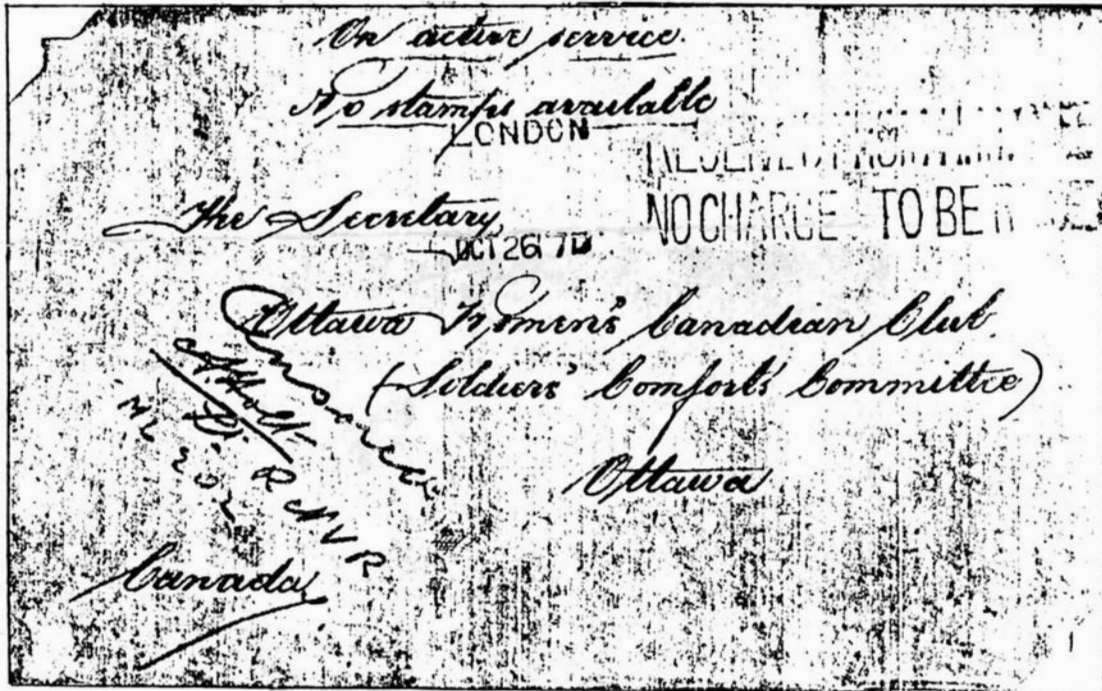 On active service.
No stamps available
LONDON
RECEIVED FROM
NO CHARGE TO BE
The Secretary,
OCT 26 17
Ottawa Women's Canadian Club.
(Soldiers' Comforts' Committee)
Ottawa
A Holt
RCNVR
Canada